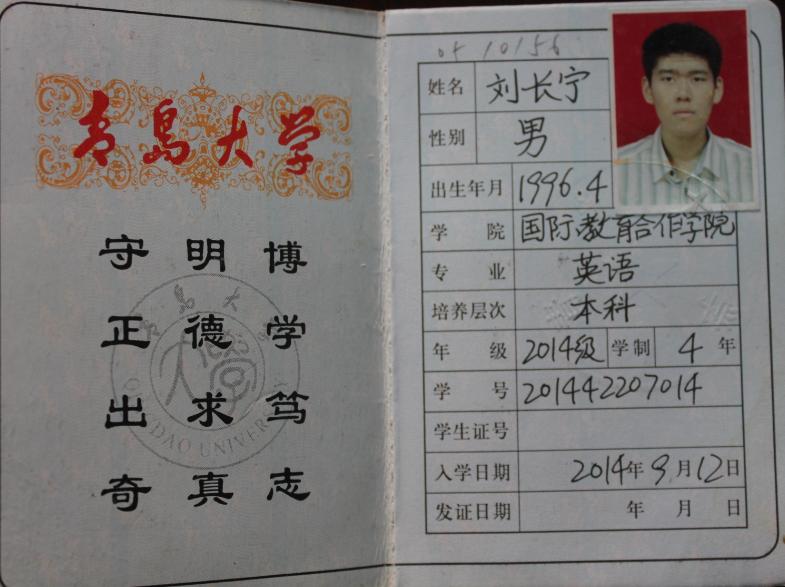 青岛大学
博学笃志
明德求真
守正出奇
05 10156
姓名 刘长宁
性别 男
出生年月 1996.4
学院 国际教育合作学院
专业 英语
培养层次 本科
年级 2014级 学制 4年
学号 201442207014
学生证号
入学日期 2014年9月12日
发证日期 年 月 日